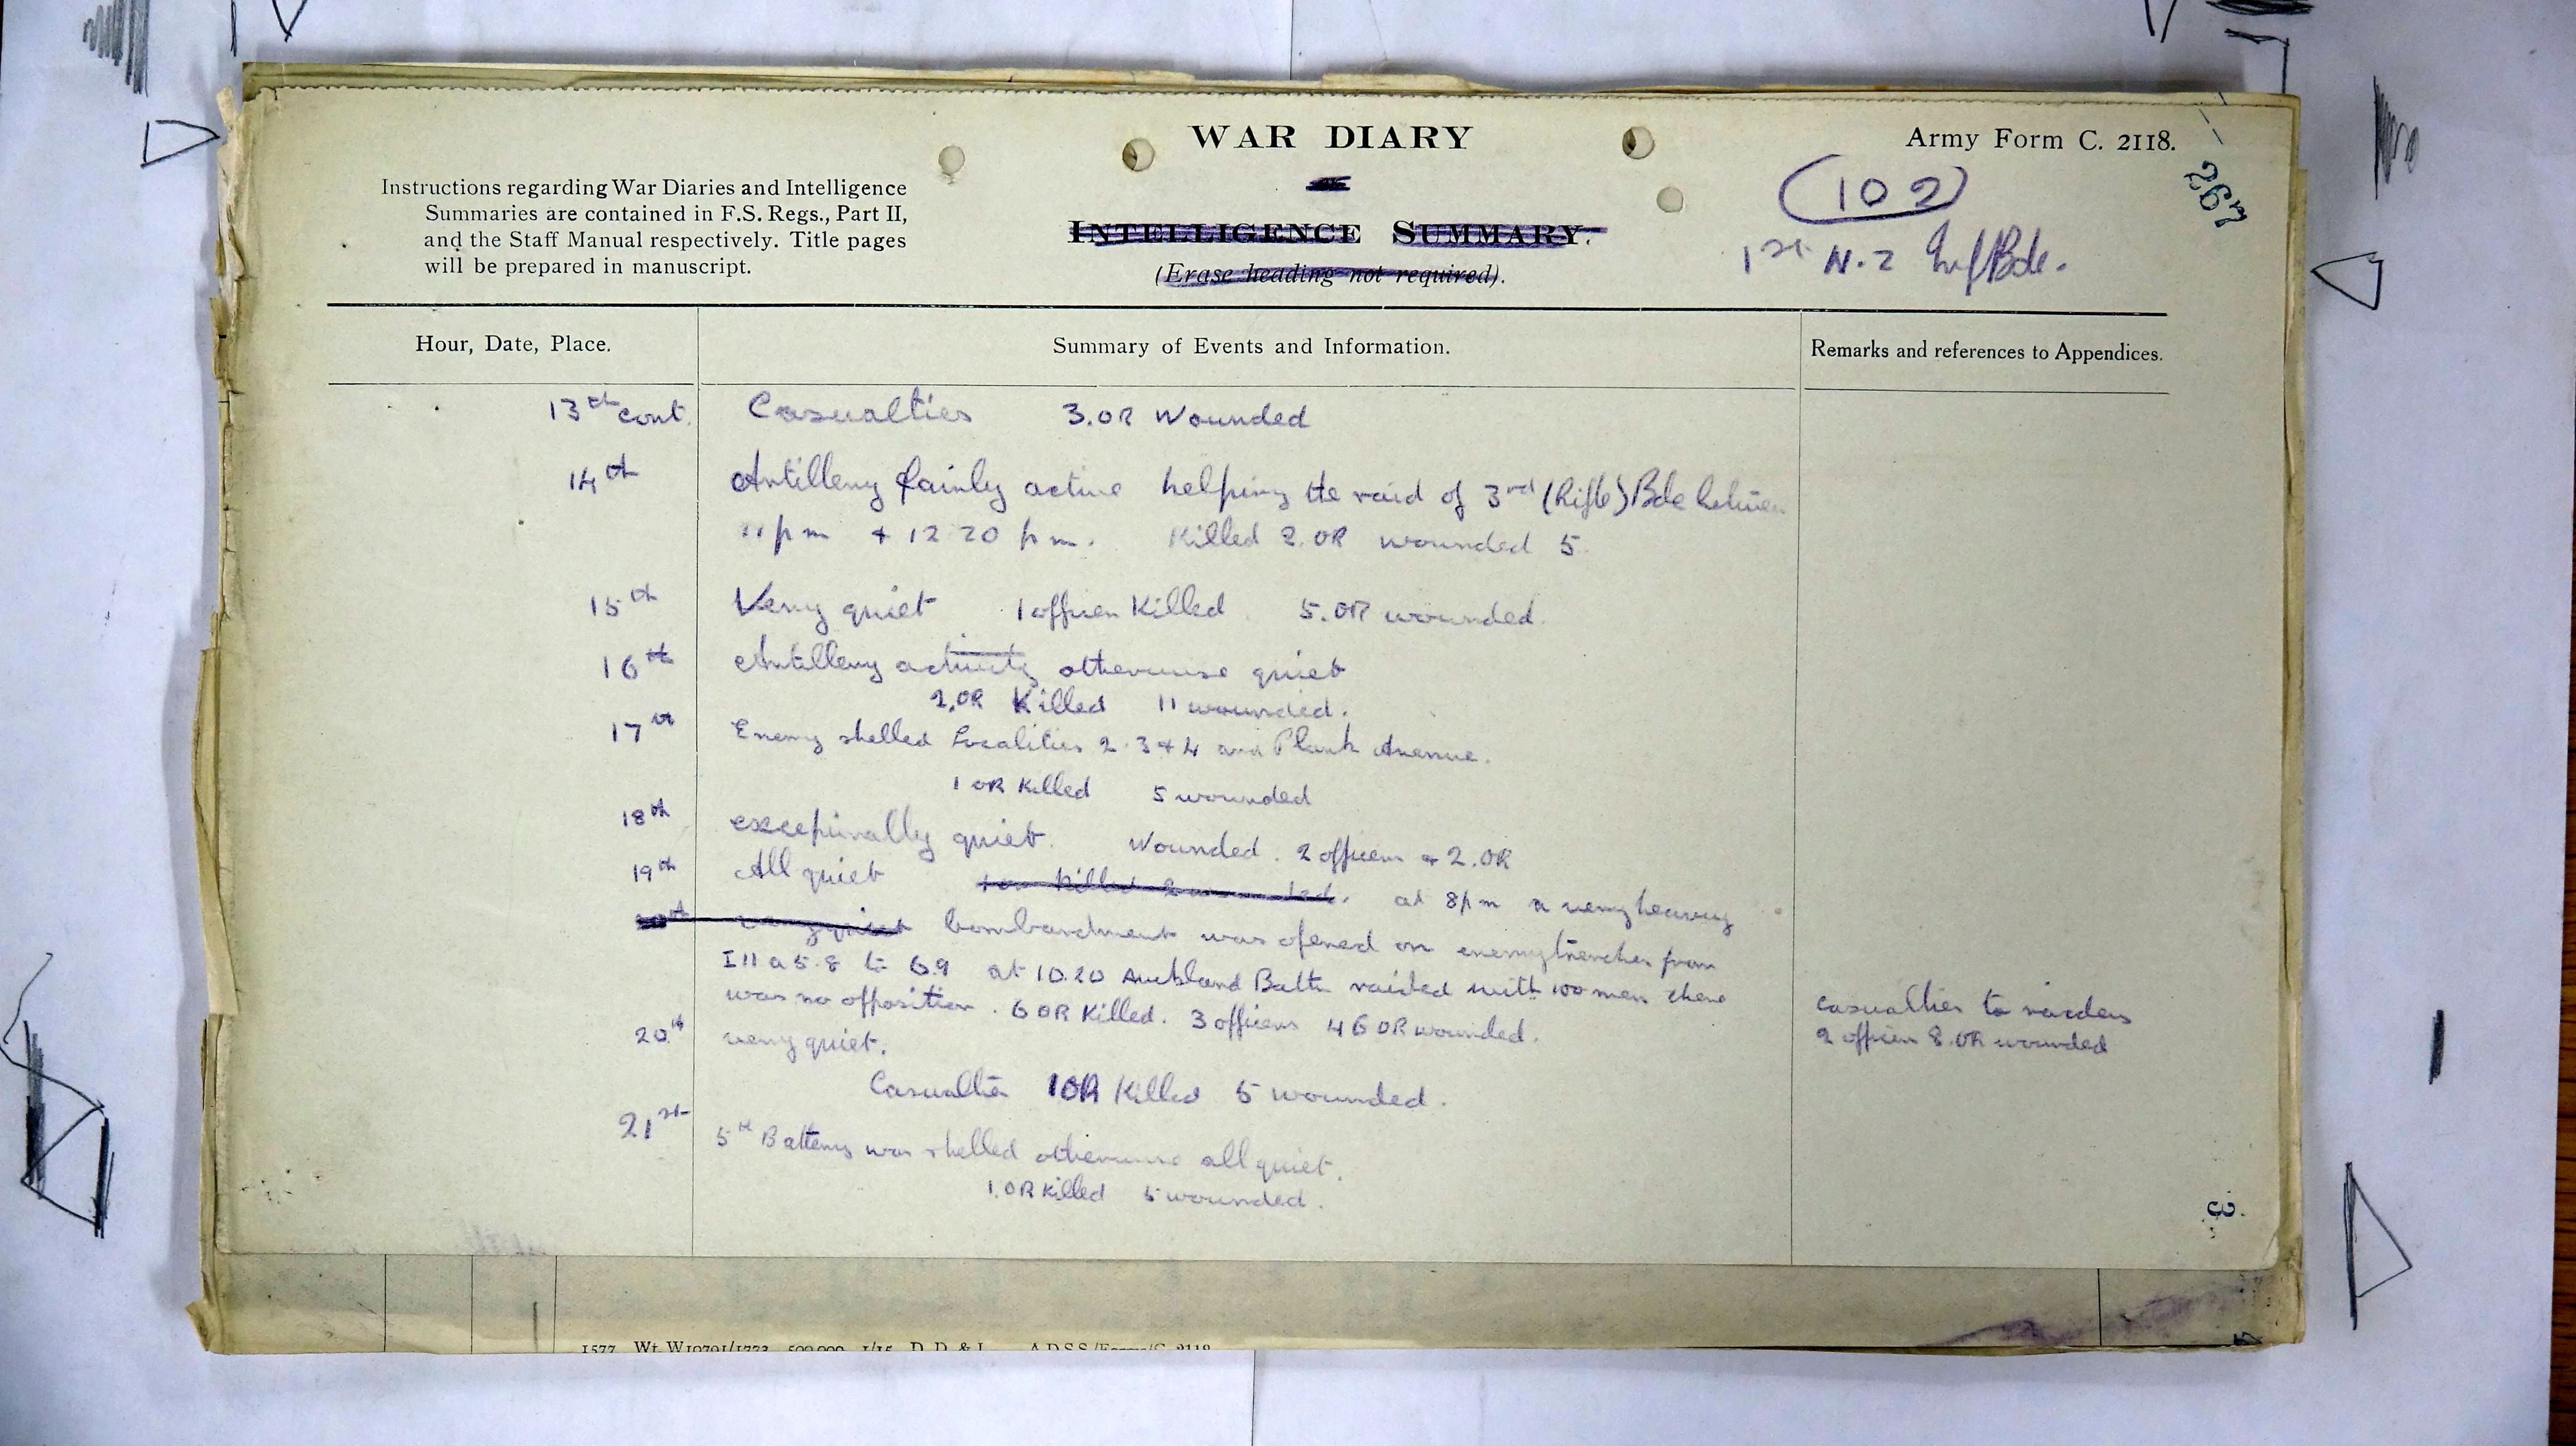 WAR DIARY
Army Form C. 2118.
or
(102)
267
Instructions regarding War Diaries and Intelligence
Summaries are contained in F.S. Regs., Part II,
and the Staff Manual respectively. Title pages
will be prepared in manuscript.
INTELLIGENCE SUMMARY.
(Erase heading not required).
1st N.Z Inf Bde.
Hour, Date, Place.
Summary of Events and Information.
Remarks and references to Appendices.
13th cont. Casualties 3.OR Wounded
14th Artillery fairly active helping the raid of 3rd (Rifle) Bde between
11 pm + 12 20 pm. Killed 2.OR wounded 5.
15th Very quiet 1 officer Killed. 5.OR wounded.
16th Artillery activity otherwise quiet
2.OR Killed 11 wounded.
17th Enemy shelled Localities 2.3 + 4 and Plank Avenue.
1 OR Killed 5 wounded
18th excepinally quiet. Wounded. 2 officers + 2.OR
19th All quiet Killed 2 at 8pm a very heavy
20th very quiet bombardment was opened on enemy trenches from
I 11 a 5.8 to 6.9 at 10.20 Auckland Battn raided with 100 men there
was no opposition. 6 OR Killed. 3 officers 46 OR wounded.
casualties to raiders
2 officers 8.OR wounded
20th very quiet.
Casualties 1 OR Killed 5 wounded.
21st 5th Battery was shelled otherwise all quiet.
1.OR Killed 5 wounded.
3
1577 Wt. W10791/1773 500,000 1/15 D. D. & L. A.D.S.S./Forms/C. 2118